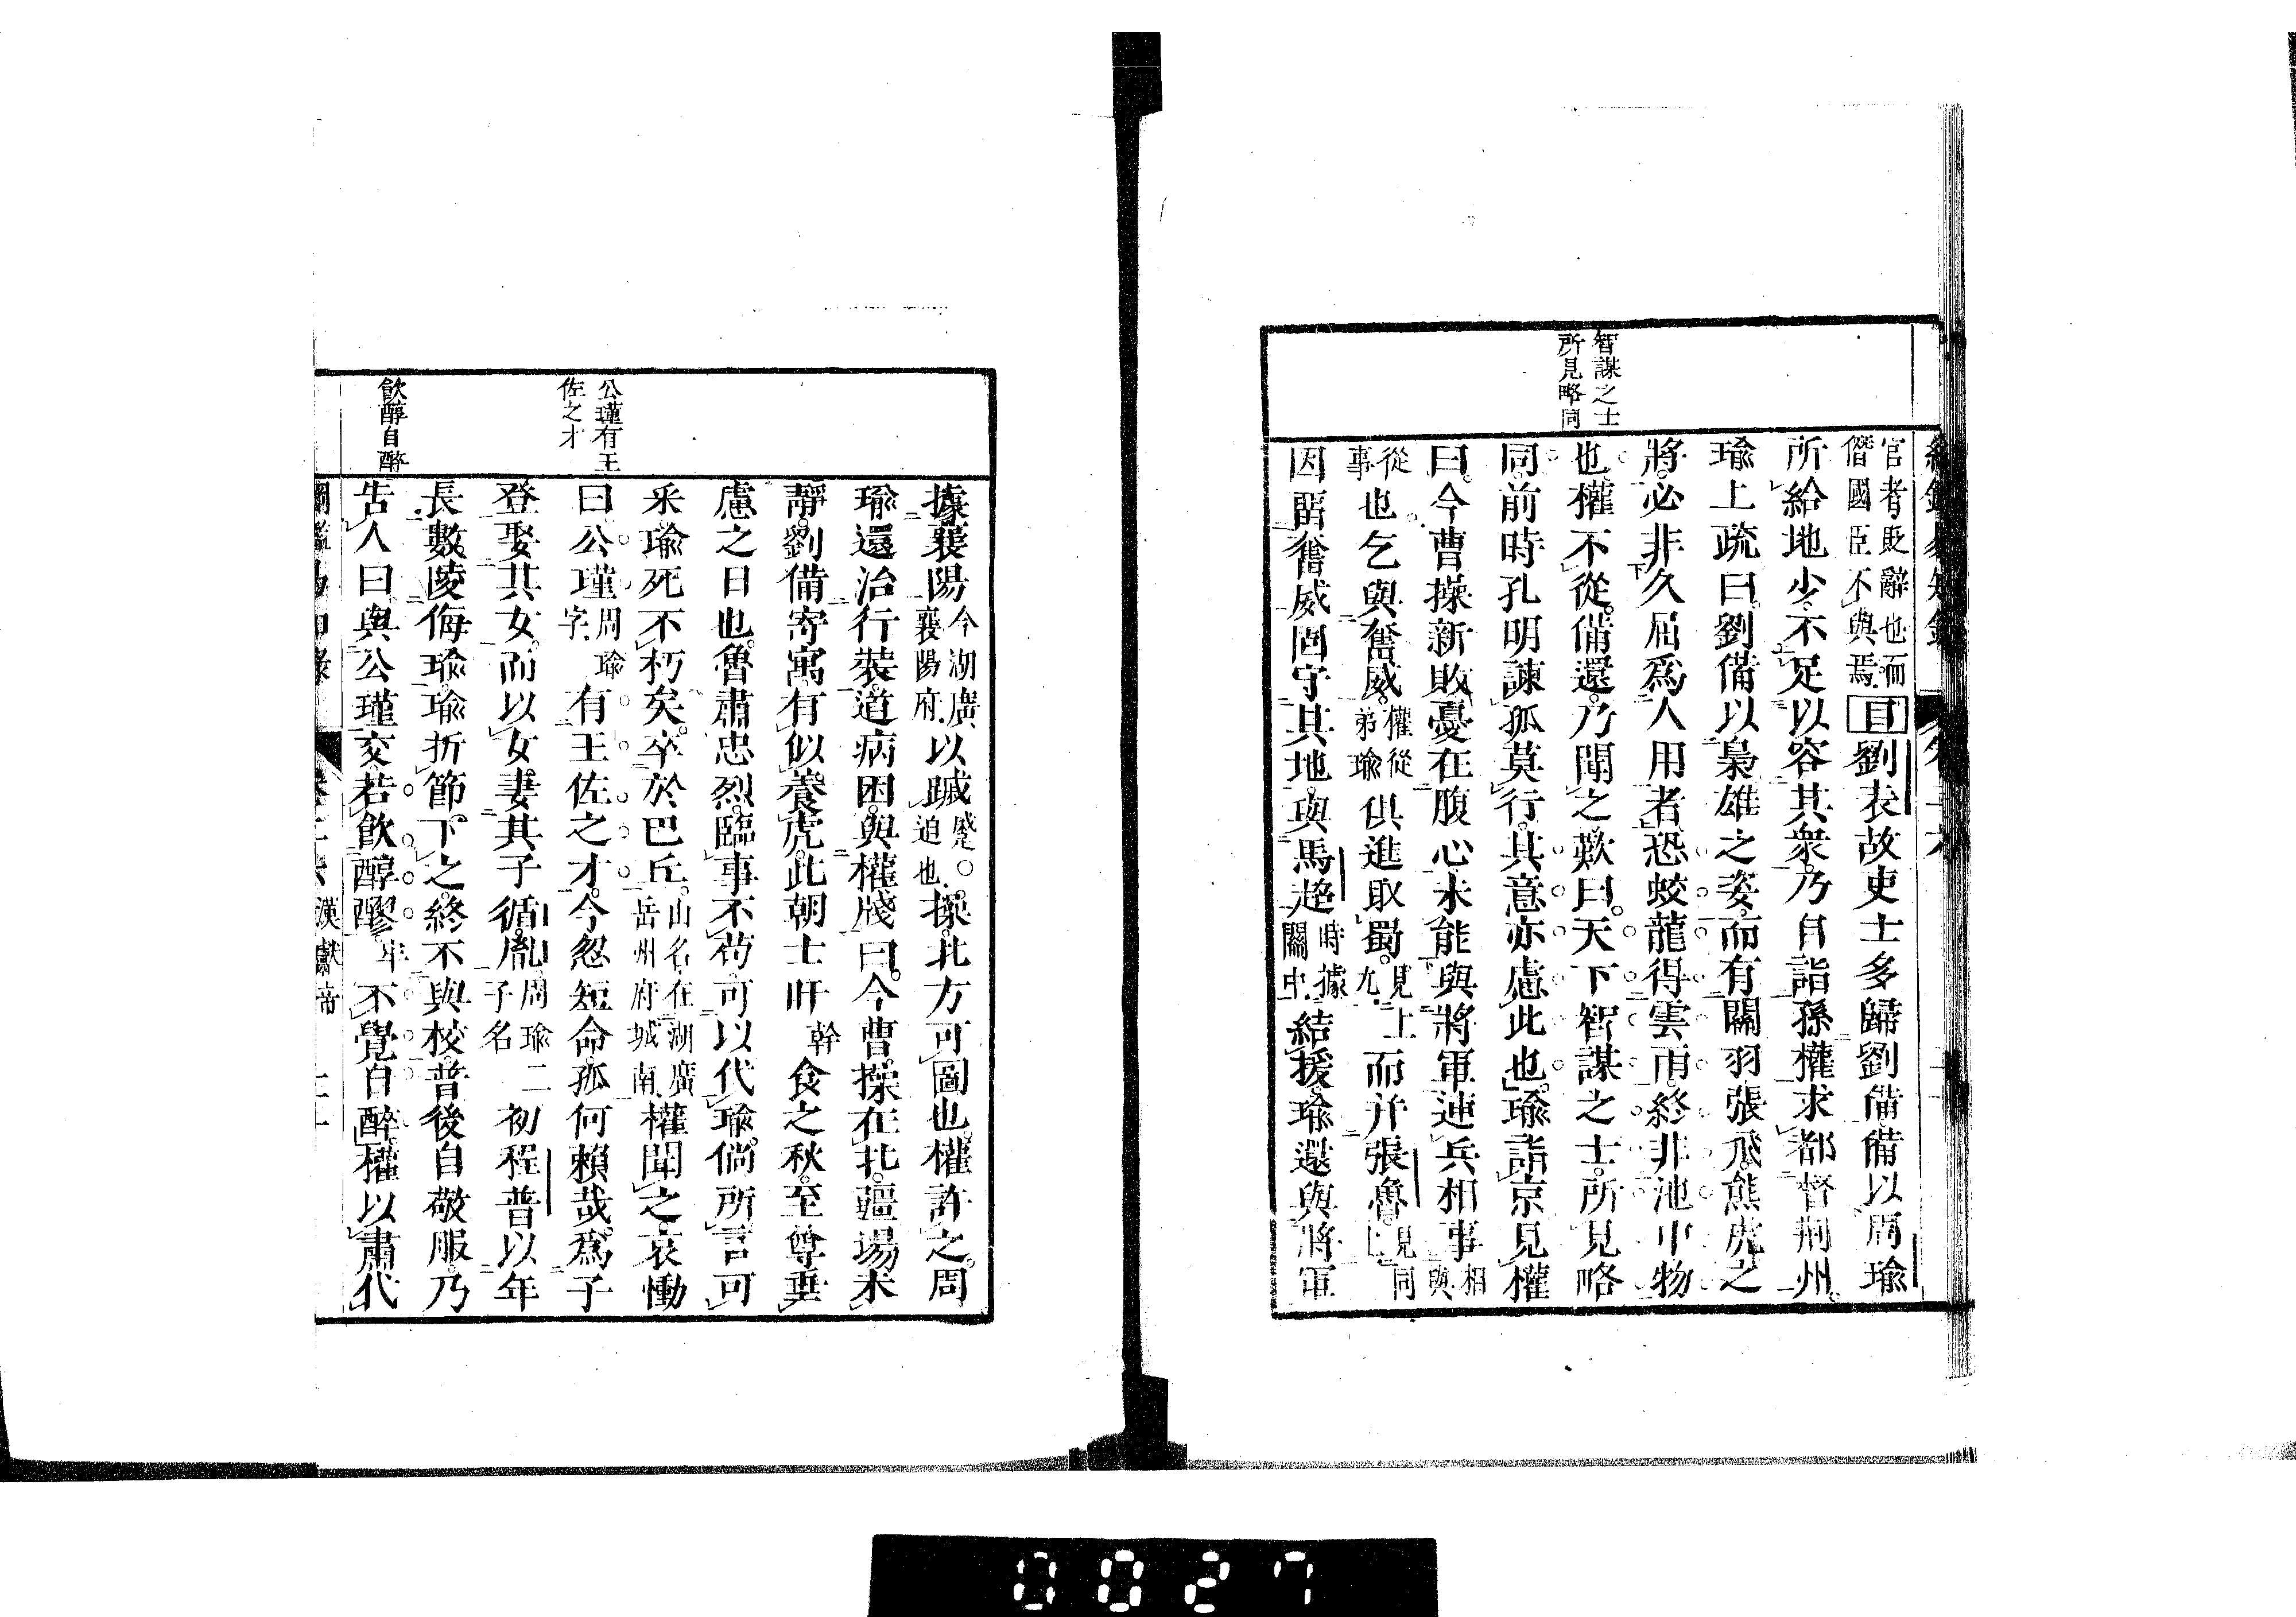 智謀之士
所見略同
官者貶辭也而
僭國臣不與焉
目劉表故吏士多歸劉備備以周瑜
所給地少不足以容其衆乃自詣孫權求都督荊州
瑜上疏曰劉備以梟雄之姿而有關羽張飛熊虎之
將必非久屈爲人用者恐蛟龍得雲雨終非池中物
也權不從備還乃聞之歎曰天下智謀之士所見略
同前時孔明諫孤莫行其意亦慮此也瑜詣京見權
曰今曹操新敗憂在腹心未能與將軍連兵相事相與
從事也乞與奮威權從弟瑜俱進取蜀見上九而并張魯見上同
因留奮威固守其地與馬超時據關中結援瑜還與將軍
公瑾有王
佐之才
飲醇自醉
據襄陽今湖廣襄陽府以蹴蹙迫也操北方可圖也權許之周
瑜還治行裝道病困與權牋曰今曹操在北疆場未
靜劉備寄寓有似養虎此朝士旰幹食之秋至尊垂
慮之日也魯肅忠烈臨事不苟可以代瑜倘所言可
采瑜死不朽矣卒於巴丘山名在湖廣岳州府城南權聞之哀慟
曰公瑾周瑜字有王佐之才今忽短命孤何賴哉爲子
登娶其女而以女妻其子循胤周瑜二子名初程普以年
長數陵侮瑜瑜折節下之終不與校普後自敬服乃
告人曰與公瑾交若飲醇醪牢不覺自醉權以肅代
漢獻帝
0027